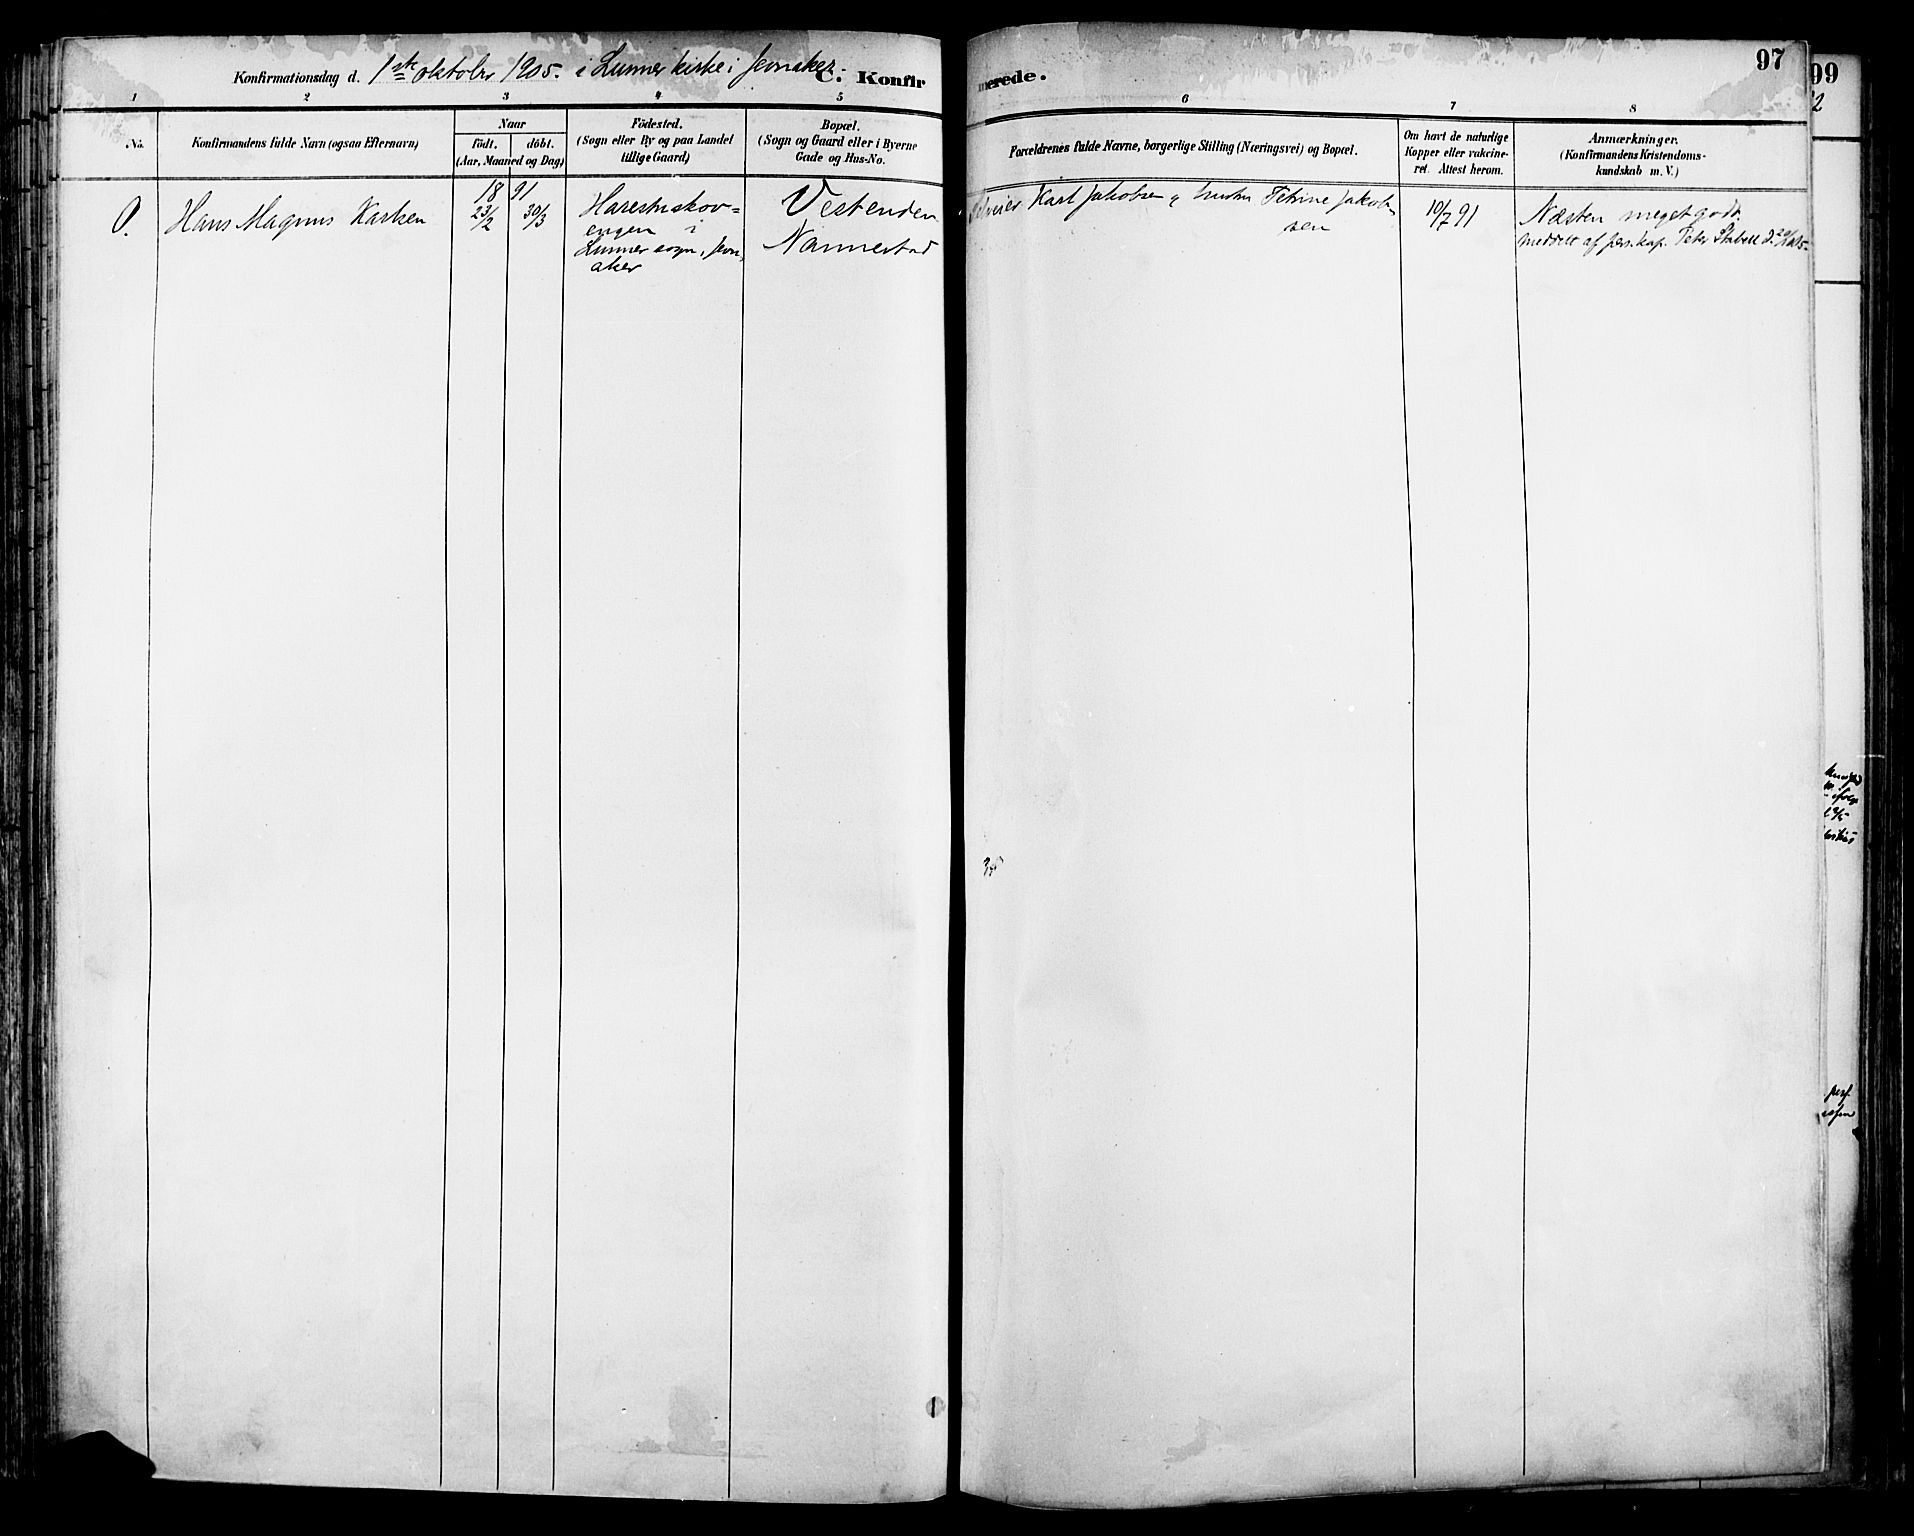 Konfirmationsdag d. 1ste oktober 1905. i Lunner kirke i Jevnaker. C. Konfir
merede. 97
99
2
1 2 3 4 5 6 7 8
No.
Konfirmandens fulde Navn (ogsaa Efternavn)
Naar
födt. döbt.
(Aar, Maaned og Dag)
Födested.
(Sogn eller By og paa Landet
tillige Gaard)
Bopæl.
(Sogn og Gaard eller i Byerne
Gade og Hus-No.
Forældrenes fulde Navne, borgerlige Stilling (Næringsvei) og Bopæl.
Om havt de naturlige
Kopper eller vakcine-
ret. Attest herom.
Anmærkninger.
(Konfirmandens Kristendoms-
kundskab m. V.)
0.
Hans Magnus Karlsen
18 91
23/2 30/3
Harestuskov=
engen i
Lunner sogn, Jevn,
aker
Vestenden
Nannestad
Karl Jakobsen og hustru Petrine Jakob-
sen
10/7 91
Næsten meget godt.
meddelt af pers. kap. Peter Stabell d.